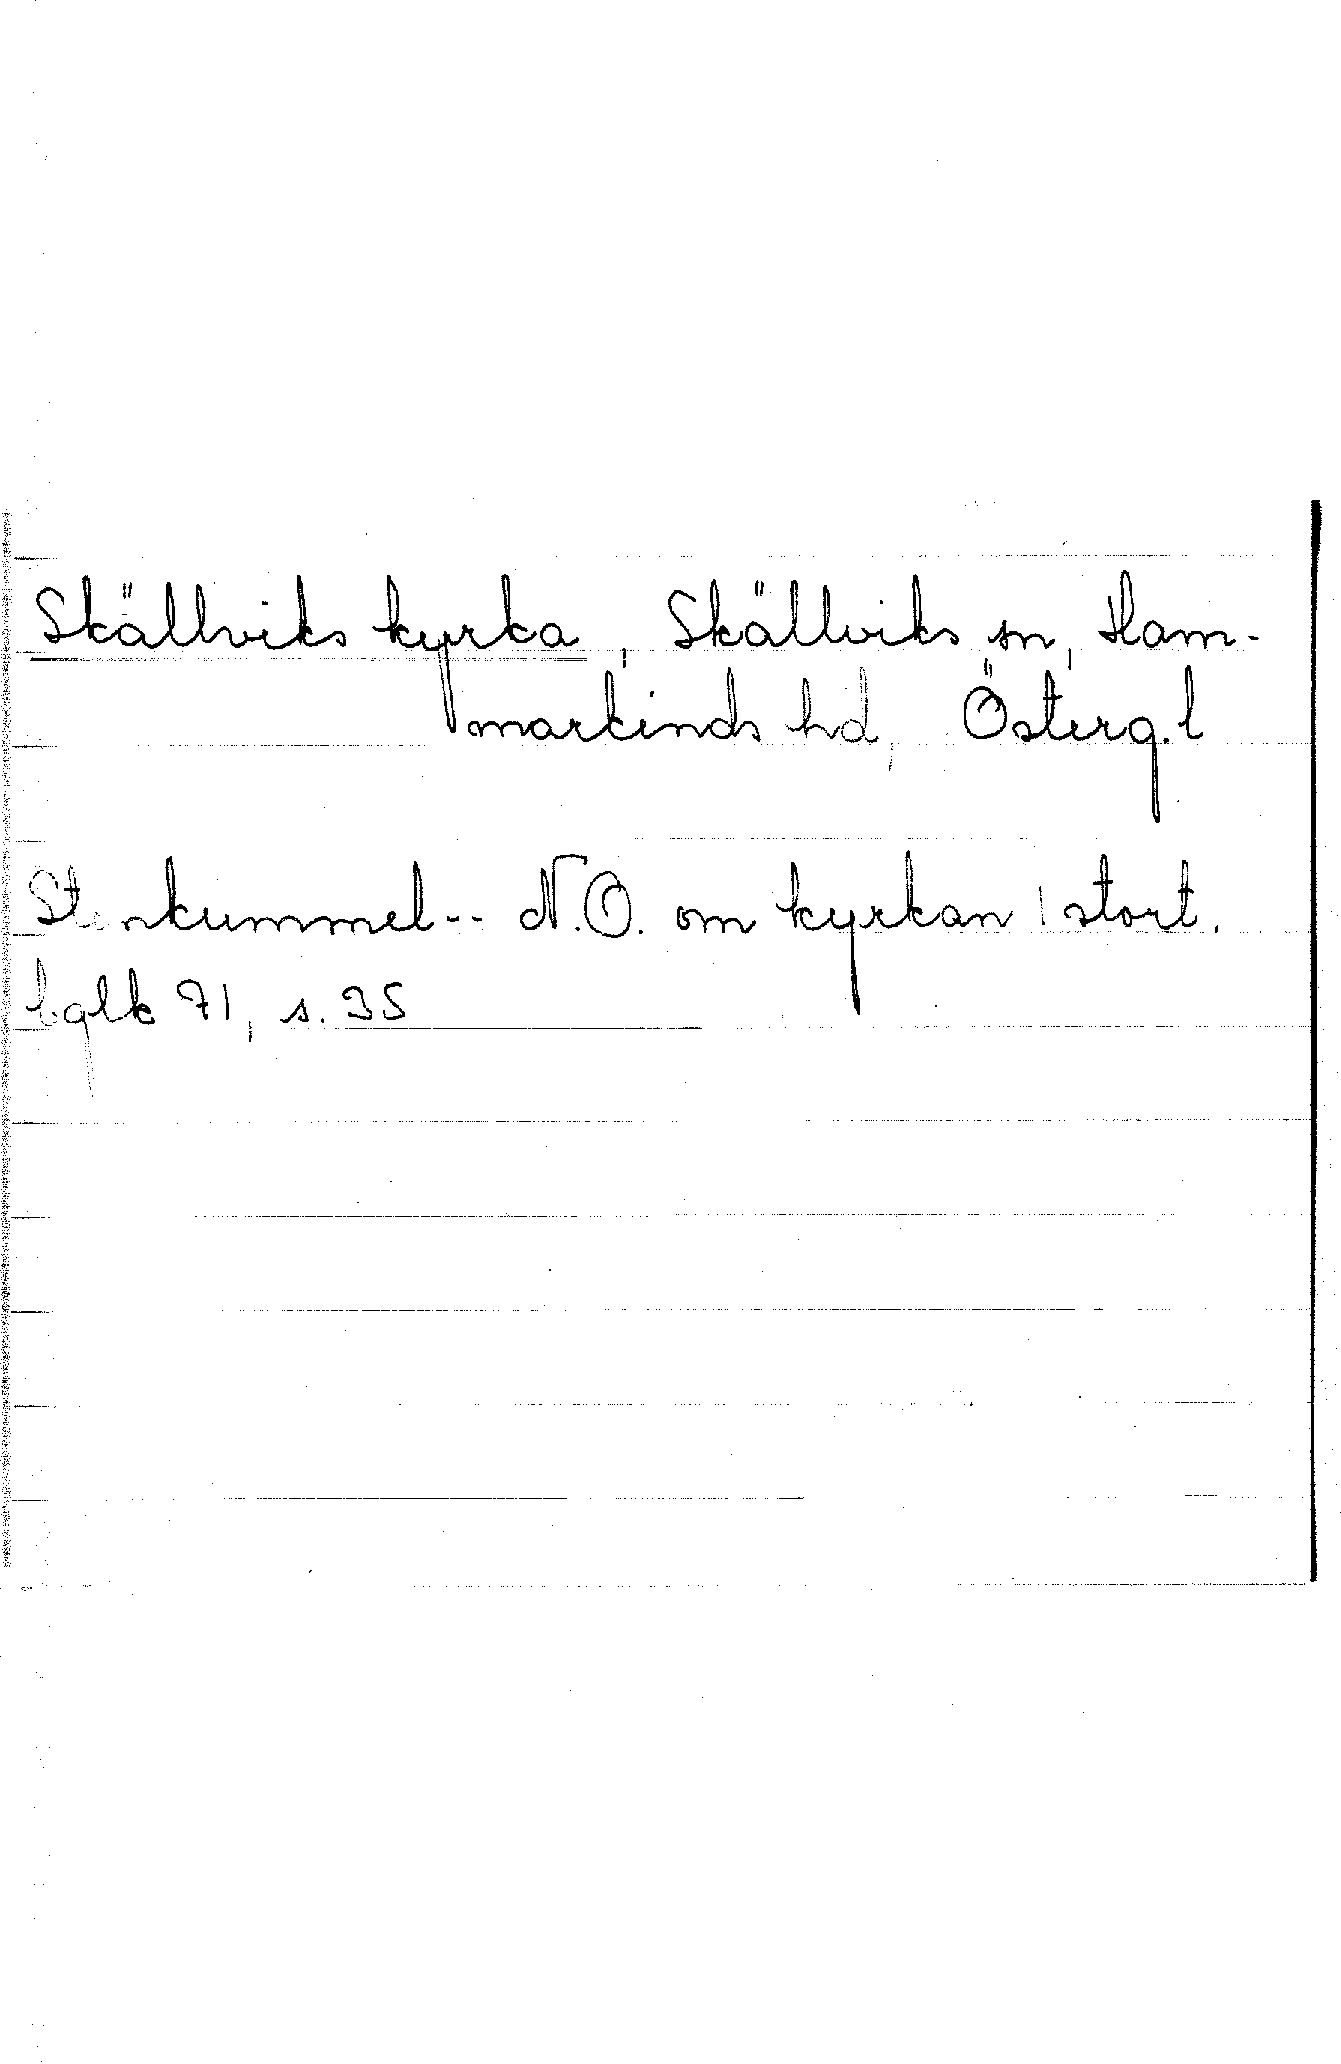 Skällviks kyrka, Skällviks sn, Ham-
markinds hd, Österg.l
Stenkummel-- N.O. om kyrkan! stort.
bglk 71, s. 35